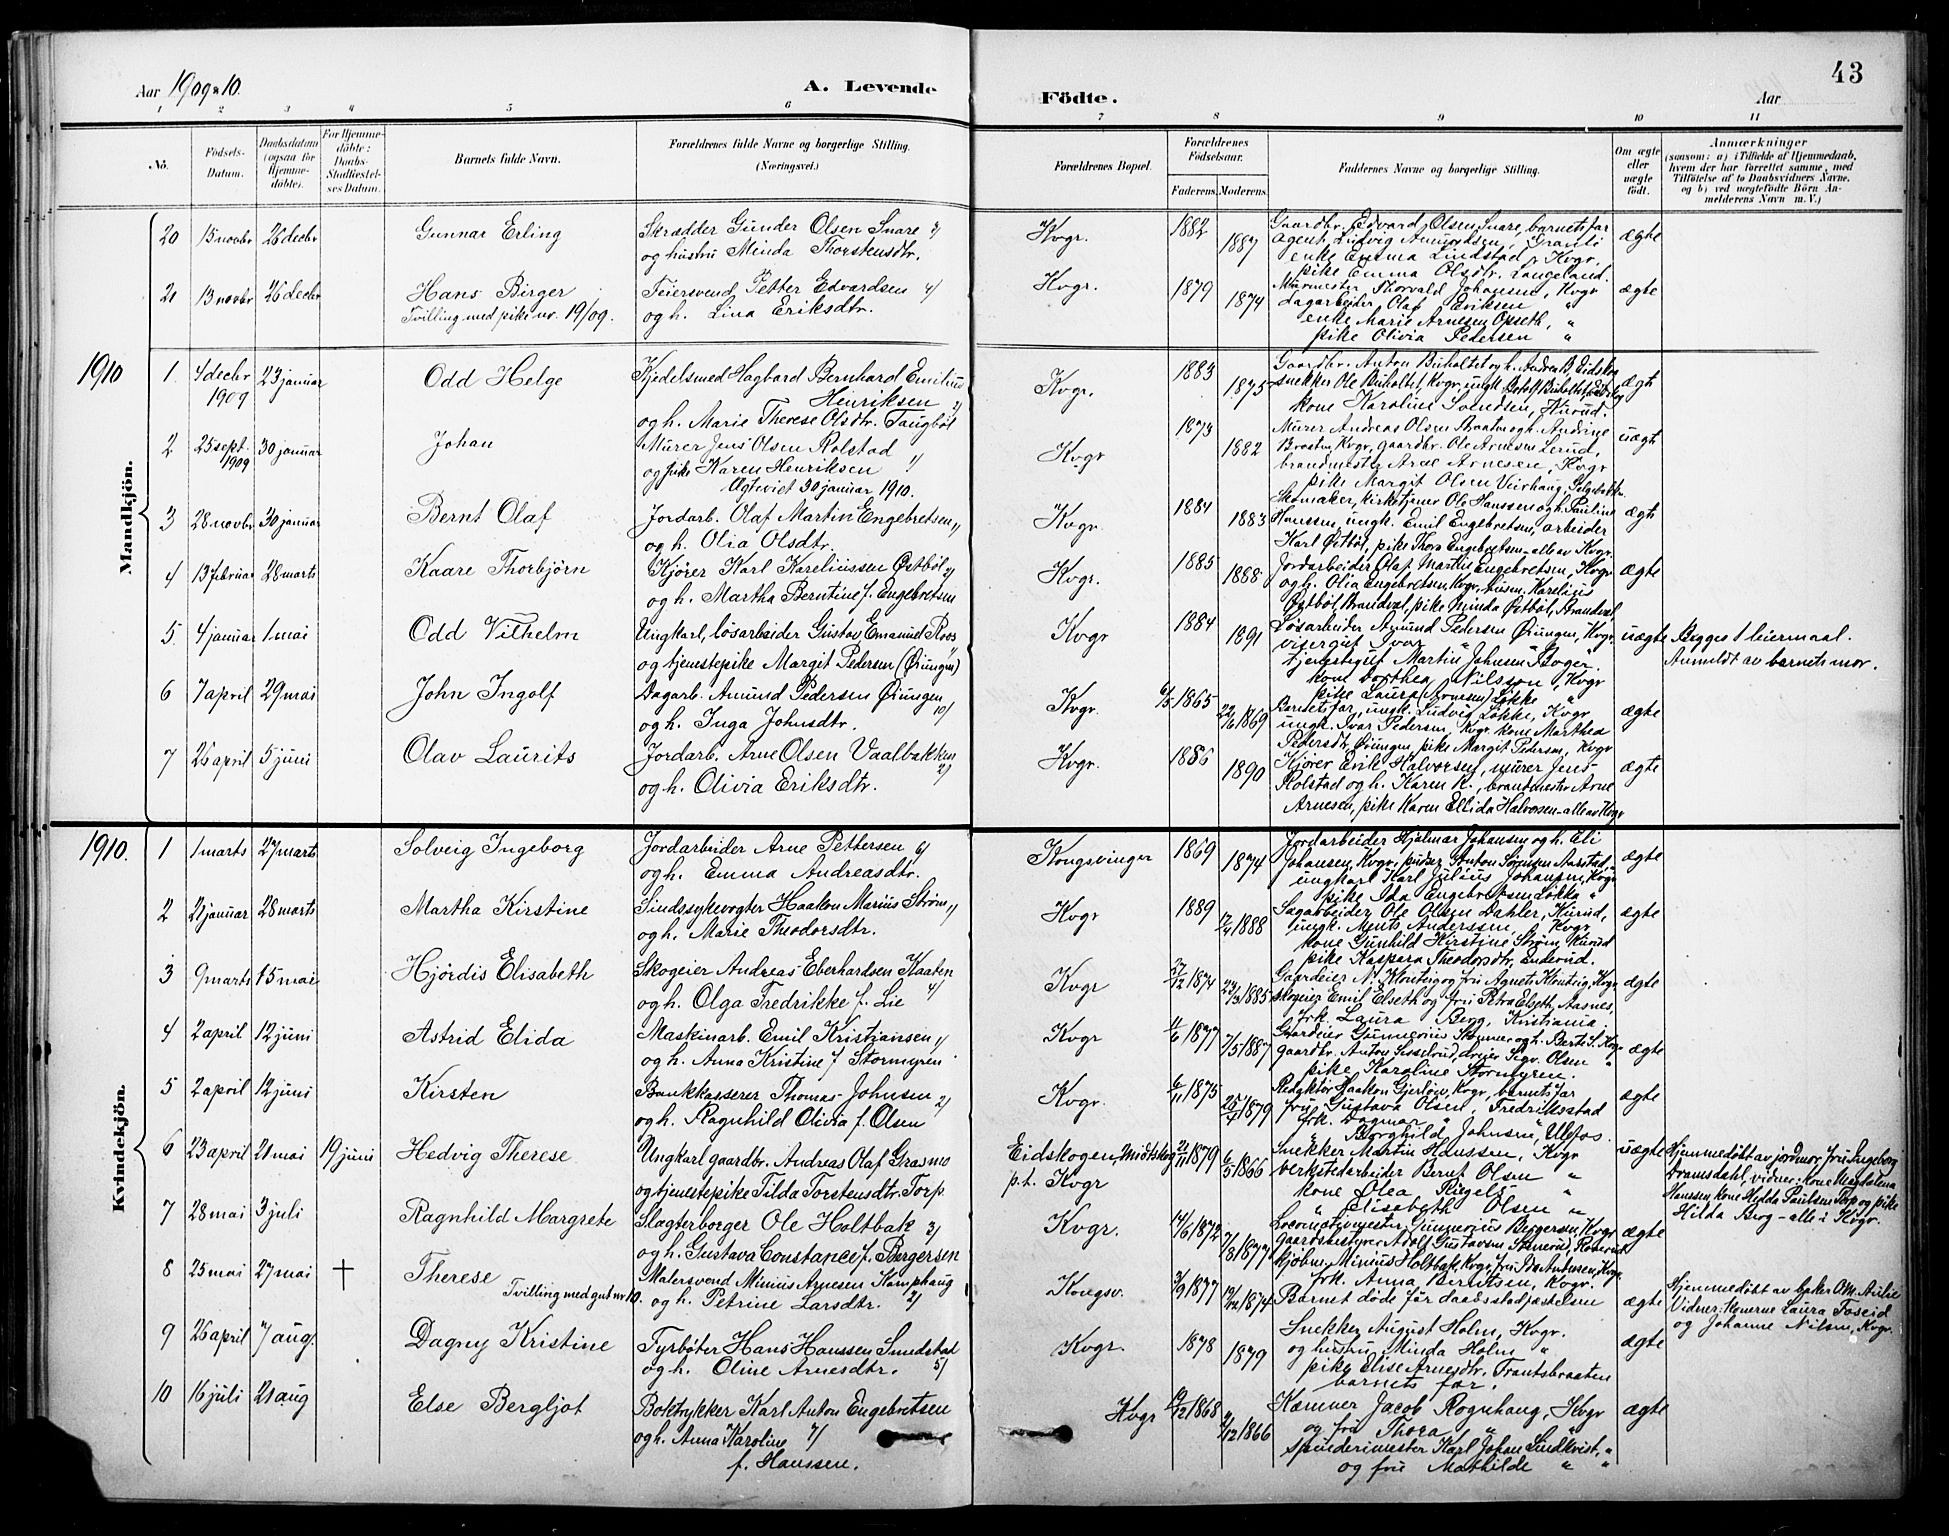 43
Aar 1909 & 10. A. Levende Födte. Aar
1 2 3 4 5 6 7 8 9 10 11
No. Födsels-Datum. Daabsdatum (ogsaa for Hjemmedöbte). For Hjemmedöbte: Daabs-Stadfæstelses Datum. Barnets fulde Navn. Forældrenes fulde Navne og borgerlige Stilling. (Næringsvei.) Forældrenes Bopæl. Forældrenes Födselsaar. Faderens. Moderens. Faddernes Navne og borgerlige Stilling. Om ægte eller uægte födt. Anmærkninger (saasom: a) i Tilfælde af Hjemmedaab, hvem der har forrettet samme, med Tilföielse af to Daabsvidners Navne, og b) ved uægtefödte Börn Anmelderens Navn m. V.)
Mandkjön.
20 15 novbr 26 decbr Gunnar Erling Skrædder Gunder Olsen Snare 3/ Kvgr. 1882 Gaardbr. Edvard Olsen Snare, barnets far ægte
og hustru Minda Thorstensdtr. 1887 agent Ludvig Amundsen, Granli
enke Emma Lindstad, Kvgr,
pike Emma Olsdtr. Langeland.
21 13 novbr 26 decbr Hans Birger Feiersvend Petter Edvardsen 4/ Kvgr. 1879 Murmester Thorvald Johansen, Kvgr ægte
Tvilling med pike nr. 19/09. og h. Lina Eriksdtr. 1874 dagarbeider Olaf Eriksen "
enke Marie Arnesen Opseth, "
pike Olivia Pedersen "
1910 1. 4 decbr 1909 23 januar Odd Helge Kjedelsmed Hagbard Bernhard Emilius Henriksen 2/ Kvgr. 1883 Gaardbr. Anton Buholtet og h. Andrea B, Eidskog ægte
og h. Marie Therese Olsdtr. Taugbøl 1875 snekker Ole Buholtet, Kvgr,
kone Karoline Svendsen, Vinger.
2 25 sept. 1909 30 januar Johan Murer Jens Olsen Rolstad Kvgr 1873 Murer Andreas Olsen Braaten og h. Andrine uægte
og pike Karen Henriksen 1/ 1882 Braaten, Kvgr, gaardbr. Ole Arnesen Lerud,
Ægteviet 30 januar 1910. brandmester Arne Arnesen, Kvgr
pike Margit Olsen
3 28 novbr 30 januar Bernt Olaf Jordarb. Olaf Martin Engebretsen 1/ Kvgr. 1884 Skomaker, kirketjener Ole Hanssen og h. Pauline ægte
og h. Olia Olsdtr. 1883 Hanssen, ungk. Emil Engebretsen, arbeider
Karl Østbøl, pike Thora Engebretsen - alle av Kvgr.
4 13 februar 28 marts Kaare Thorbjörn Kjører Karl Kareliussen Østbøl 1/ Kvgr. 1885 Jordarbeider Olaf Martin Engebretsen, Kvgr ægte
og h. Martha Berntine f. Engebretsen 1888 og h. Olia Engebretsen, Kvgr, husm. Karelius
Østbøl, Brandval, pike Minda Østbøl, Brandval,
5. 4 januar 1 mai Odd Vilhelm Ungkarl, løsarbeider Gustav Emanuel Roos Kvgr 1884 Løsarbeider Amund Pedersen Øiungen, Kvgr. uægte Begges 1 leiermaal.
og tjenestepike Margit Pedersen (Øiungen) 1/ 1891 visergut Ivar " " " Anmeldt av barnets mor.
tjenestegut Martin Johnsen Boger.
kone Dorthea Nilsson, Kvgr
pike Laura (Arnesen) Løkke "
6 7 april 29 mai John Ingolf Dagarb. Amund Pedersen Øiungen 10/ Kvgr. 6/5 1865 Barnets far, ungk. Ludvig Løkke, Kvgr ægte
og h. Inga Johnsdtr. 22/6 1869 ungk. Ivar Pedersen, Kvgr. kone Marthea
Pedersdtr. Øiungen, pike Margit Pedersen, Kvgr
7 26 april 5 juni Olav Laurits Jordarb. Arne Olsen Vaalbakken 2/ Kvgr. 1886 Kjører Erik Halvorsen, murer Jens ægte
og h. Olivia Eriksdtr. 1890 Rolstad og h. Karen R., brandmester Arne
Arnesen, pike Karen Ellida Halvorsen - alle av Kvgr
Kvindekjön.
1910. 1 1 marts 27 marts Solveig Ingeborg Jordarbeider Arne Pettersen 6/ Kongsvinger 1869 Jordarbeider Hjalmar Johansen og h. Eli ægte
og h. Emma Andreasdtr. 1874 Johansen, Kvgr, pudser Anton Sørensen Aarstad, "
ungkarl Karl Julius Johansen, Kvgr
pike Ida Engebretsen Løkka "
2 21 januar 28 marts Martha Kirstine Sindssykevogter Haakon Marius Strøm 1/ Kvgr 1889 Sagarbeider Ole Olsen Dahler, Vinger, ægte
og h. Marie Theodorsdtr. 12/4 1888 ungk. Ments Anderssen, Kvgr
kone Gunhild Kirstine Strøm, Vinger
pike Kaspara Theodorsdtr. Enderud.
3 9 marts 15 mai Hjördis Elisabeth Skogeier Andreas Eberhardsen Kaaten 4/ Kvgr 27/12 1874 Gaardeier N. Klonteig og fru Agnete Klonteig, Kvgr ægte
og h. Olga Fredrikke f. Lie 23/3 1885 skogeier Emil Elseth og fru Petra Elseth, Aasnes,
frk. Laura Berg, Kristiania
4 2 april 12 juni Astrid Elida Maskinarb. Emil Kristiansen 1/ Kvgr 4/6 1877 Gaardeier Gunnerius Stømner og h. Berte S. Kvgr ægte
og h. Anna Kristine f. Stormyren 7/5 1887 gaardbr. Anton Sisselrud, dreier Sigv. Olsen "
pike Karoline Stormyren.
5 2 april 12 juni Kirsten Bankkasserer Thomas Johnsen 2/ Kvgr. 6/11 1875 Redaktør Haakon Gjerløw, Kvgr, barnets far ægte
og h. Ragnhild Olivia f. Olsen 25/4 1879 fru Gustava Olsen, Fredriksstad
frk. Dagmar "
" Borghild Johnsen, Ulefos.
6 23 april 21 mai 19 juni Hedvig Therese Ungkarl gaardbr. Andreas Olaf Grasmo Eidskogen, Midtskog 21/11 1879 Snekker Martin Hanssen, Kvgr uægte Hjemmedøbt av jordmor, fru Ingeborg
og tjenestepike Tilda Torstensdtr. Torp. p.t. Kvgr 6/5 1866 verkstedarbeider Bernt Olsen " Dramsdahl, vidner: kone Magdalena
kone Olea Riegels " Hanssen, kone Hilda Paulsen Torp og pike
" Elisabeth Olsen " Hilda Berg - alle i Kvgr.
7 28 mai 3 juli Ragnhild Margrete Slagterborger Ole Holtbak 3/ Kvgr. 14/6 1872 Locomotivmester Gunnerius Bergersen, Kvgr ægte
og h. Gustava Constance f. Bergersen 7/8 1877 gaardsbestyrer Adolf Gustavsen Stømner,
kjøbm. Minius Holtbak, Kvgr, fru Ida Andresen, Kvgr
frk. Anna Berntsen, Kvgr.
8 25 mai 27 mai † Therese Malersvend Minius Arnesen Kamphaug Kongsv. 3/9 1877 Barnet døde før daabsstadfæstelsen ægte Hjemmedøbt av baker O.M. Aulie
Tvilling med gut nr 10. og h. Petrine Larsdtr. 2/ 19/12 1874 Vidner: konerne Laura Foseid
og Johanne Nilsen, Kvgr.
9 26 april 7 aug. Dagny Kristine Fyrbøter Hans Hanssen Smedstad Kvgr. 1878 Snekker August Holm, Kvgr. ægte
og h. Oline Arnesdtr. 5/ 1879 og hustru Minda Holm "
pike Elise Arnesdtr. Frantsbraaten
barnets far.
10 16 juli 21 aug Else Bergljot Boktrykker Karl Anton Engebretsen Kvgr 19/12 1868 Kæmner Jacob Rognhaug, Kvgr ægte
og h. Anna Karoline 7/ f. Hanssen. 4/12 1866 og fru Thora " "
spinderimester Karl Johan Lindkvist, "
og fru Mathilde " "